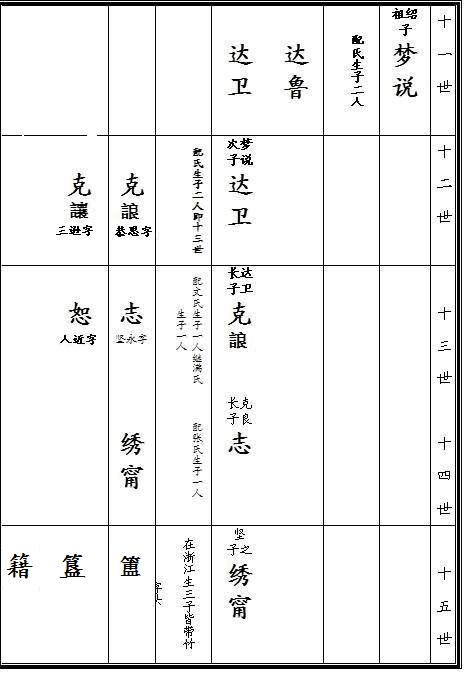 十一世
绍祖子
梦说
配氏生子二人
达鲁
达卫
十二世
梦说次子
达卫
配氏生子二人即十三世
克誏
字思恭
克讓
字逊三
十三世
达卫长子
克誏
配文氏生子一人继满氏
生子一人
志
字永坚
恕
字近人
十四世
克良长子
志
配张氏生子一人
绣甯
十五世
坚之子
绣甯
在浙江生三子皆带竹
字头
籍